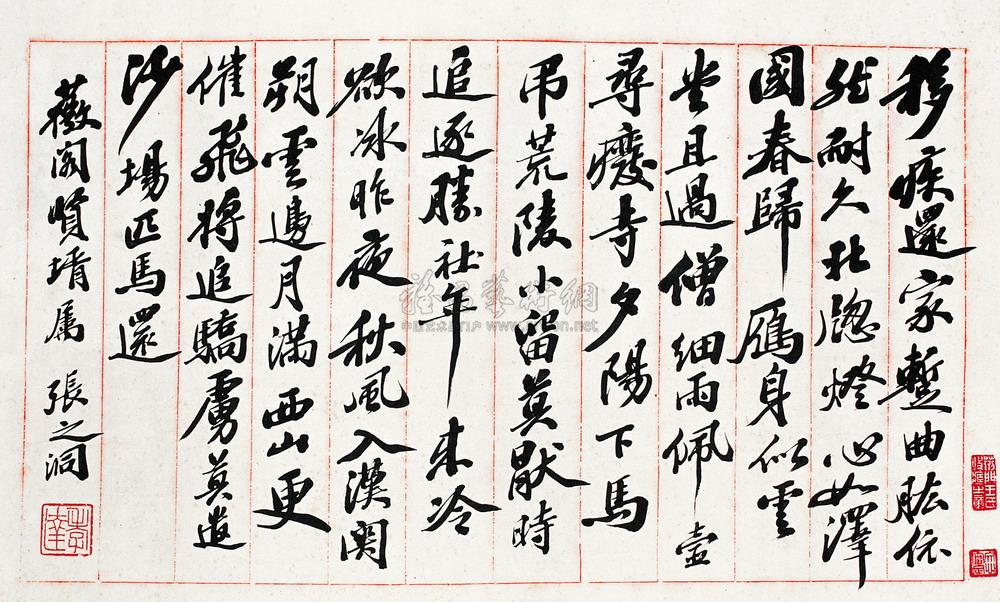 移疾還家蹔曲肱依
然耐久北牕燈心如澤
國春歸鴈身似雲
堂旦過僧細雨佩壺
尋癈寺夕陽下馬
弔荒陵小留莫猒時
追逐勝社年來冷
欲冰昨夜秋風入漢關
朔雲邊月滿西山更
催飛將追驕虜莫遣
沙場匹馬還
薇閣賢壻屬 張之洞